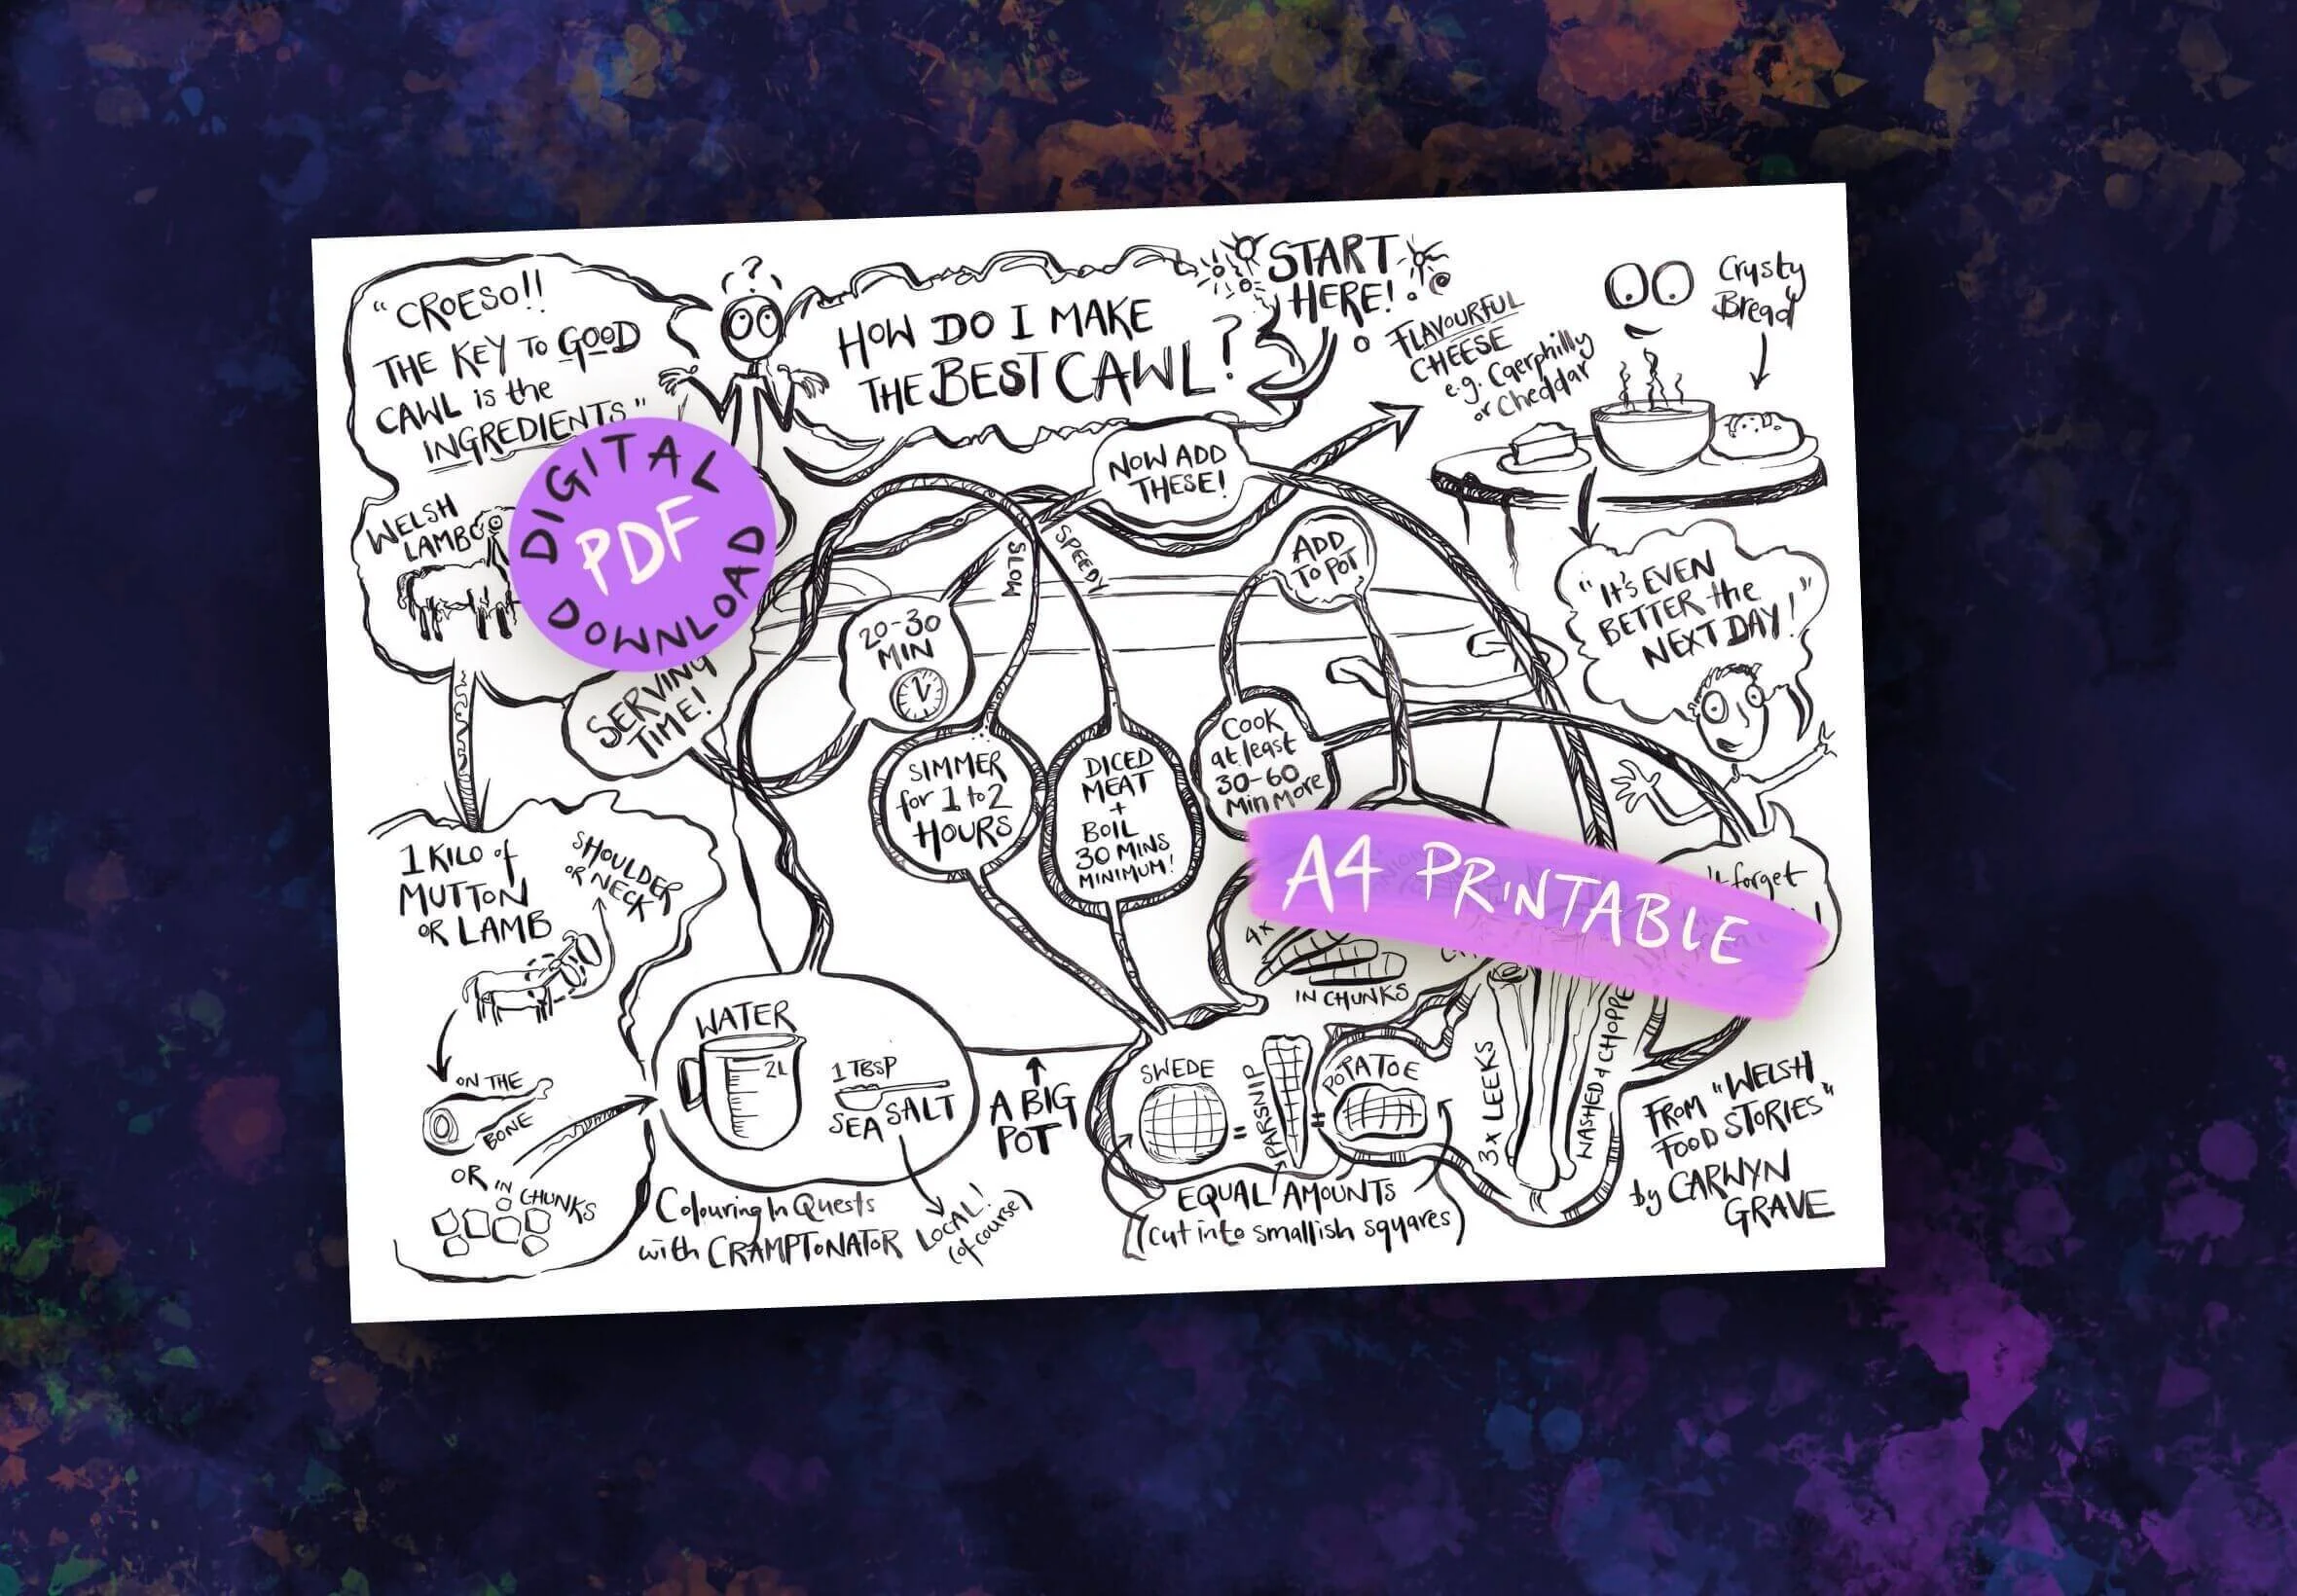 "CROESO!!
THE KEY TO GOOD
CAWL is the
INGREDIENTS"
WELSH
LAMB
DIGITAL
PDF
DOWNLOAD
?
HOW DO I MAKE
THE BEST CAWL?
START
HERE!
FLAVOURFUL
CHEESE
e.g. Caerphilly
or Cheddar
Crusty
Bread
"It's EVEN
BETTER the
NEXT DAY!"
NOW ADD
THESE!
SLOW
SPEEDY
ADD
TO POT
20-30
MIN
SERVING
TIME!
SIMMER
for 1 to 2
HOURS
DICED
MEAT
+
BOIL
30 MINS
MINIMUM!
COOK
at least
30-60
Min More
A4 PRINTABLE
forget
1 KILO of
MUTTON
OR LAMB
SHOULDER
OR NECK
ON THE
BONE
OR IN CHUNKS
WATER
2L
1 TBSP
SEA SALT
LOCAL!
(of course)
A BIG
POT
4x
IN CHUNKS
SWEDE
=
PARSNIP
=
POTATOE
EQUAL AMOUNTS
(cut into smallish squares)
3x LEEKS
WASHED & CHOPPE
FROM "WELSH
FOOD STORIES"
by CARWYN
GRAVE
Colouring In Quests
with CRAMPTONATOR